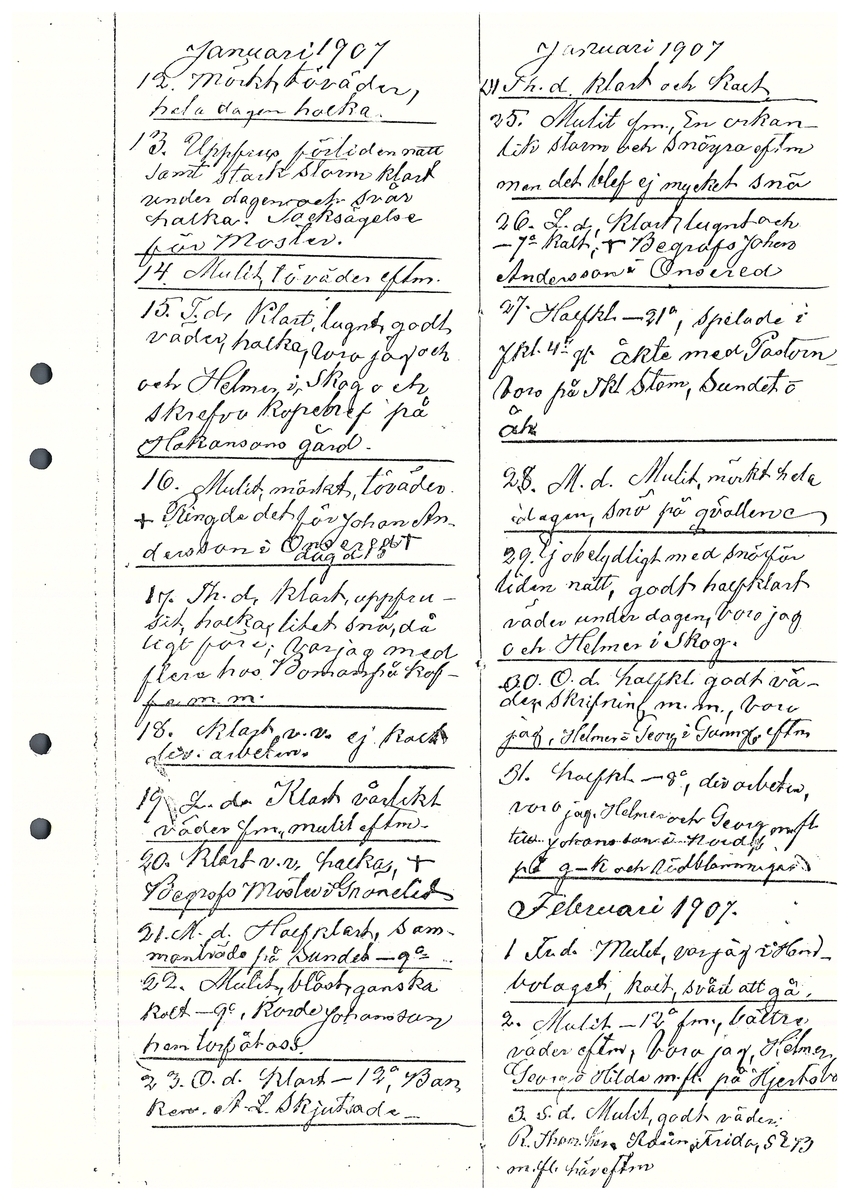 Januari 1907
12. Mörkt, töväder,
hela dagen halka.
13. Uppfrus förliden natt
samt stark storm klart
under dagen och svår
halka. Tacksägelse
för Moster.
14. Mulit, töväder eftm.
15. T.d. Klart, lugnt, godt
väder, halka, voro jag och
och Helmer i Skog och
skrefvo köpebref på
Håkansons gård.
16. Mulit, mörkt, töväder.
+ Ringde det för Johan An-
dersson i Onsered +
dag d 13
17. Th. d. klart, uppfru-
sit, halka, litet snö, då
ligt före, var jag med
flere hos Boman på kaf-
fe m. m.
18. Klart, v. v. ej kalt
div. arbeten.
19 L. d. Klart vårlikt
väder fm., mulit eftm.
20. Klart v.v. halka, +
Begrofs Moster i Grönelid
21. M. d. Halfklart, sam-
manträde på Sundet -9°
22. Mulit, blåst, ganska
kalt -9°, Körde Johansson
hem
23. O. d. Klart -12°, Ban
A. L. Skjutsade
Januari 1907
24 Th. d. klart och kalt
25. Mulit fm., En orkan-
lik storm och snöyra eftm
men det blef ej mycket snö
26. L. d. klart, lugnt och
-7° kalt, + Begrofs Johan
Andersson i Onsered
27. Halfkl. -21°, spelade i
åkte med Pastorn
voro på Skl Stom, Sundet o
28. M. d. Mulit, mörkt hela
dagen, snö på qvällen
29. obetydligt med snö för
liden natt, godt halfklart
väder under dagen, voro jag
och Helmer i Skog.
30. O. d. halfkl. godt vä-
der, skrifning m. m., voro
jag, Helmer o Georg i eftm
31. halfkl. -8°, div arbeten,
voro jag, Helmer och Georg m fl
Johansson i
på och
Februari 1907.
1 Mulit, var jag i
bolaget, kalt, svårt att gå.
2. Mulit -12° fm., bättre
väder eftm, voro jag, Helmer,
Georg o Hilda m. fl. på
3. S. d. Mulit, godt väder.
R. Frida,
m. fl. här eftm